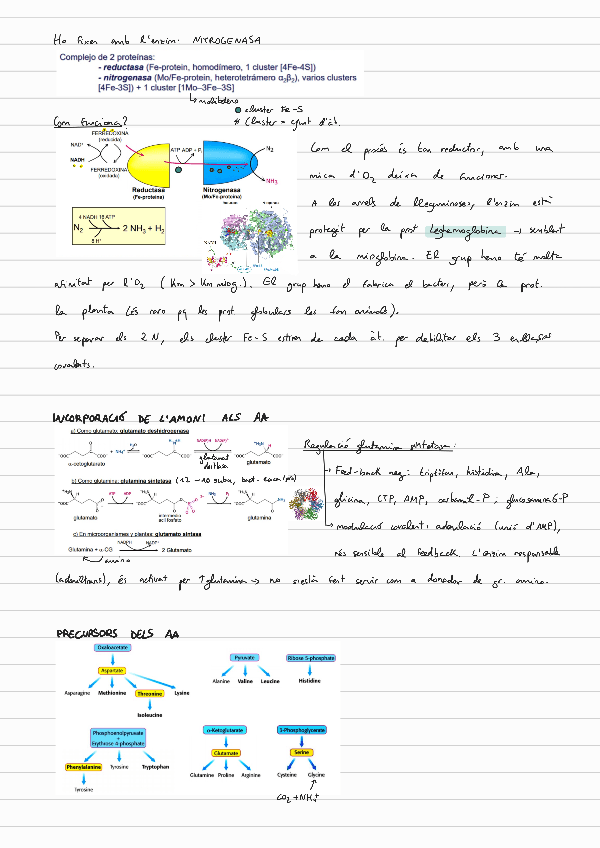 Ho fixen amb l'enzim: NITROGENASA
Complejo de 2 proteínas:
- reductasa (Fe-protein, homodímero, 1 cluster [4Fe-4S])
- nitrogenasa (Mo/Fe-protein, heterotetrámero α₂β₂), varios clusters
[4Fe-3S]) + 1 cluster [1Mo–3Fe–3S]
↳ molibdeno
cluster Fe-S
# Cluster = cjunt d'àt.
Com funciona?
FERREDOXINA
(reducida)
NAD⁺
NADH
FERREDOXINA
(oxidada)
ATP ADP + Pᵢ
N₂
NH₃
Reductasa
(Fe-proteína)
Nitrogenasa
(Mo/Fe-proteína)
4 NADH 16 ATP
N₂ → 2 NH₃ + H₂
8 H⁺
Com el procés és tan reductor, amb una
mica d'O₂ deixa de funcionar.
A les arrels de lleguminoses, l'enzim està
protegit per la prot Leghemoglobina → semblant
a la mioglobina. El grup hemo té molta
afinitat per l'O₂ (Km > Km miog.). El grup hemo el fabrica el bacteri, però la prot.
la planta (és raro pq les prot globulars les fan animals).
Per separar els 2 N, els cluster Fe-S estiren de cada àt. per debilitar els 3 enllaços
covalents.
INCORPORACIÓ DE L'AMONI ALS AA
a) Como glutamato: glutamato deshidrogenasa
+ NH₄⁺
H₂O
α-cetoglutarato
glutamat
deshasa
glutamato
b) Como glutamina: glutamina sintetasa
(12
glutamato
ATP
ADP
intermedio
acil fosfato
glutamina
c) En microorganismes y plantas: glutamato sintasa
NADPH NADP⁺
Glutamina + α-CG → 2 Glutamato
amino
Regulació glutamina sintetasa:
Feed-back neg: triptòfan, histidina, Ala,
glicina, CTP, AMP, carbamil-P i glucosamina 6-P
modulació covalent: adenilació (unió d'AMP),
més sensible al feedback. L'enzim responsable
(adeniltrans), és activat per ↑glutamina → no s'està fent servir com a donador de gr. amino.
PRECURSORS DELS AA
Oxaloacetate
Aspartate
Asparagine Methionine Threonine Lysine
Isoleucine
Pyruvate
Alanine Valine Leucine
Ribose 5-phosphate
Histidine
Phosphoenolpyruvate
+
Erythrose 4-phosphate
Phenylalanine Tyrosine Tryptophan
Tyrosine
α-Ketoglutarate
Glutamate
Glutamine Proline Arginine
3-Phosphoglycerate
Serine
Cysteine Glycine
CO₂ + NH₄⁺